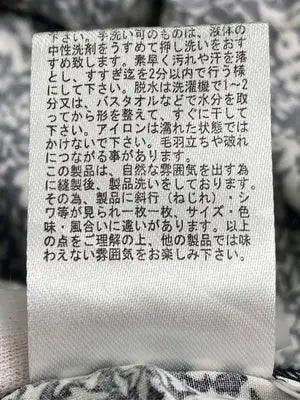 す。手洗い可のものは、液体の
中性洗剤をうすめて押し洗いをおす
すめ致します。素早く汚れや汗を落
とし、すすぎ迄を2分以内で行う様
にして下さい。脱水は洗濯機で1~2
分又は、バスタオルなどで水分を取
ってから形を整えて、すぐに干して
下さい。アイロンは濡れた状態では
かけないで下さい。毛羽立ちや破れ
につながる事があります。
この製品は、自然な雰囲気を出す為
に縫製後、製品洗いをしております。
その為、製品に斜行(ねじれ)・シ
ワ等が見られ一枚一枚、サイズ・色
味・風合いに違いがあります。以上
の点をご理解の上、他の製品では味
わえない雰囲気をお楽しみ下さい。